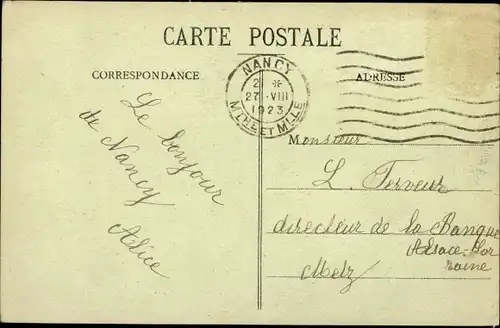 CARTE POSTALE
CORRESPONDANCE
ADRESSE
NANCY
27 VIII
1923
MTHE ET MLLE
Le bonjour
de Nancy
Alice
Monsieur
L. Terveur
directeur de la Banque
Alsace-Lor
raine
Metz